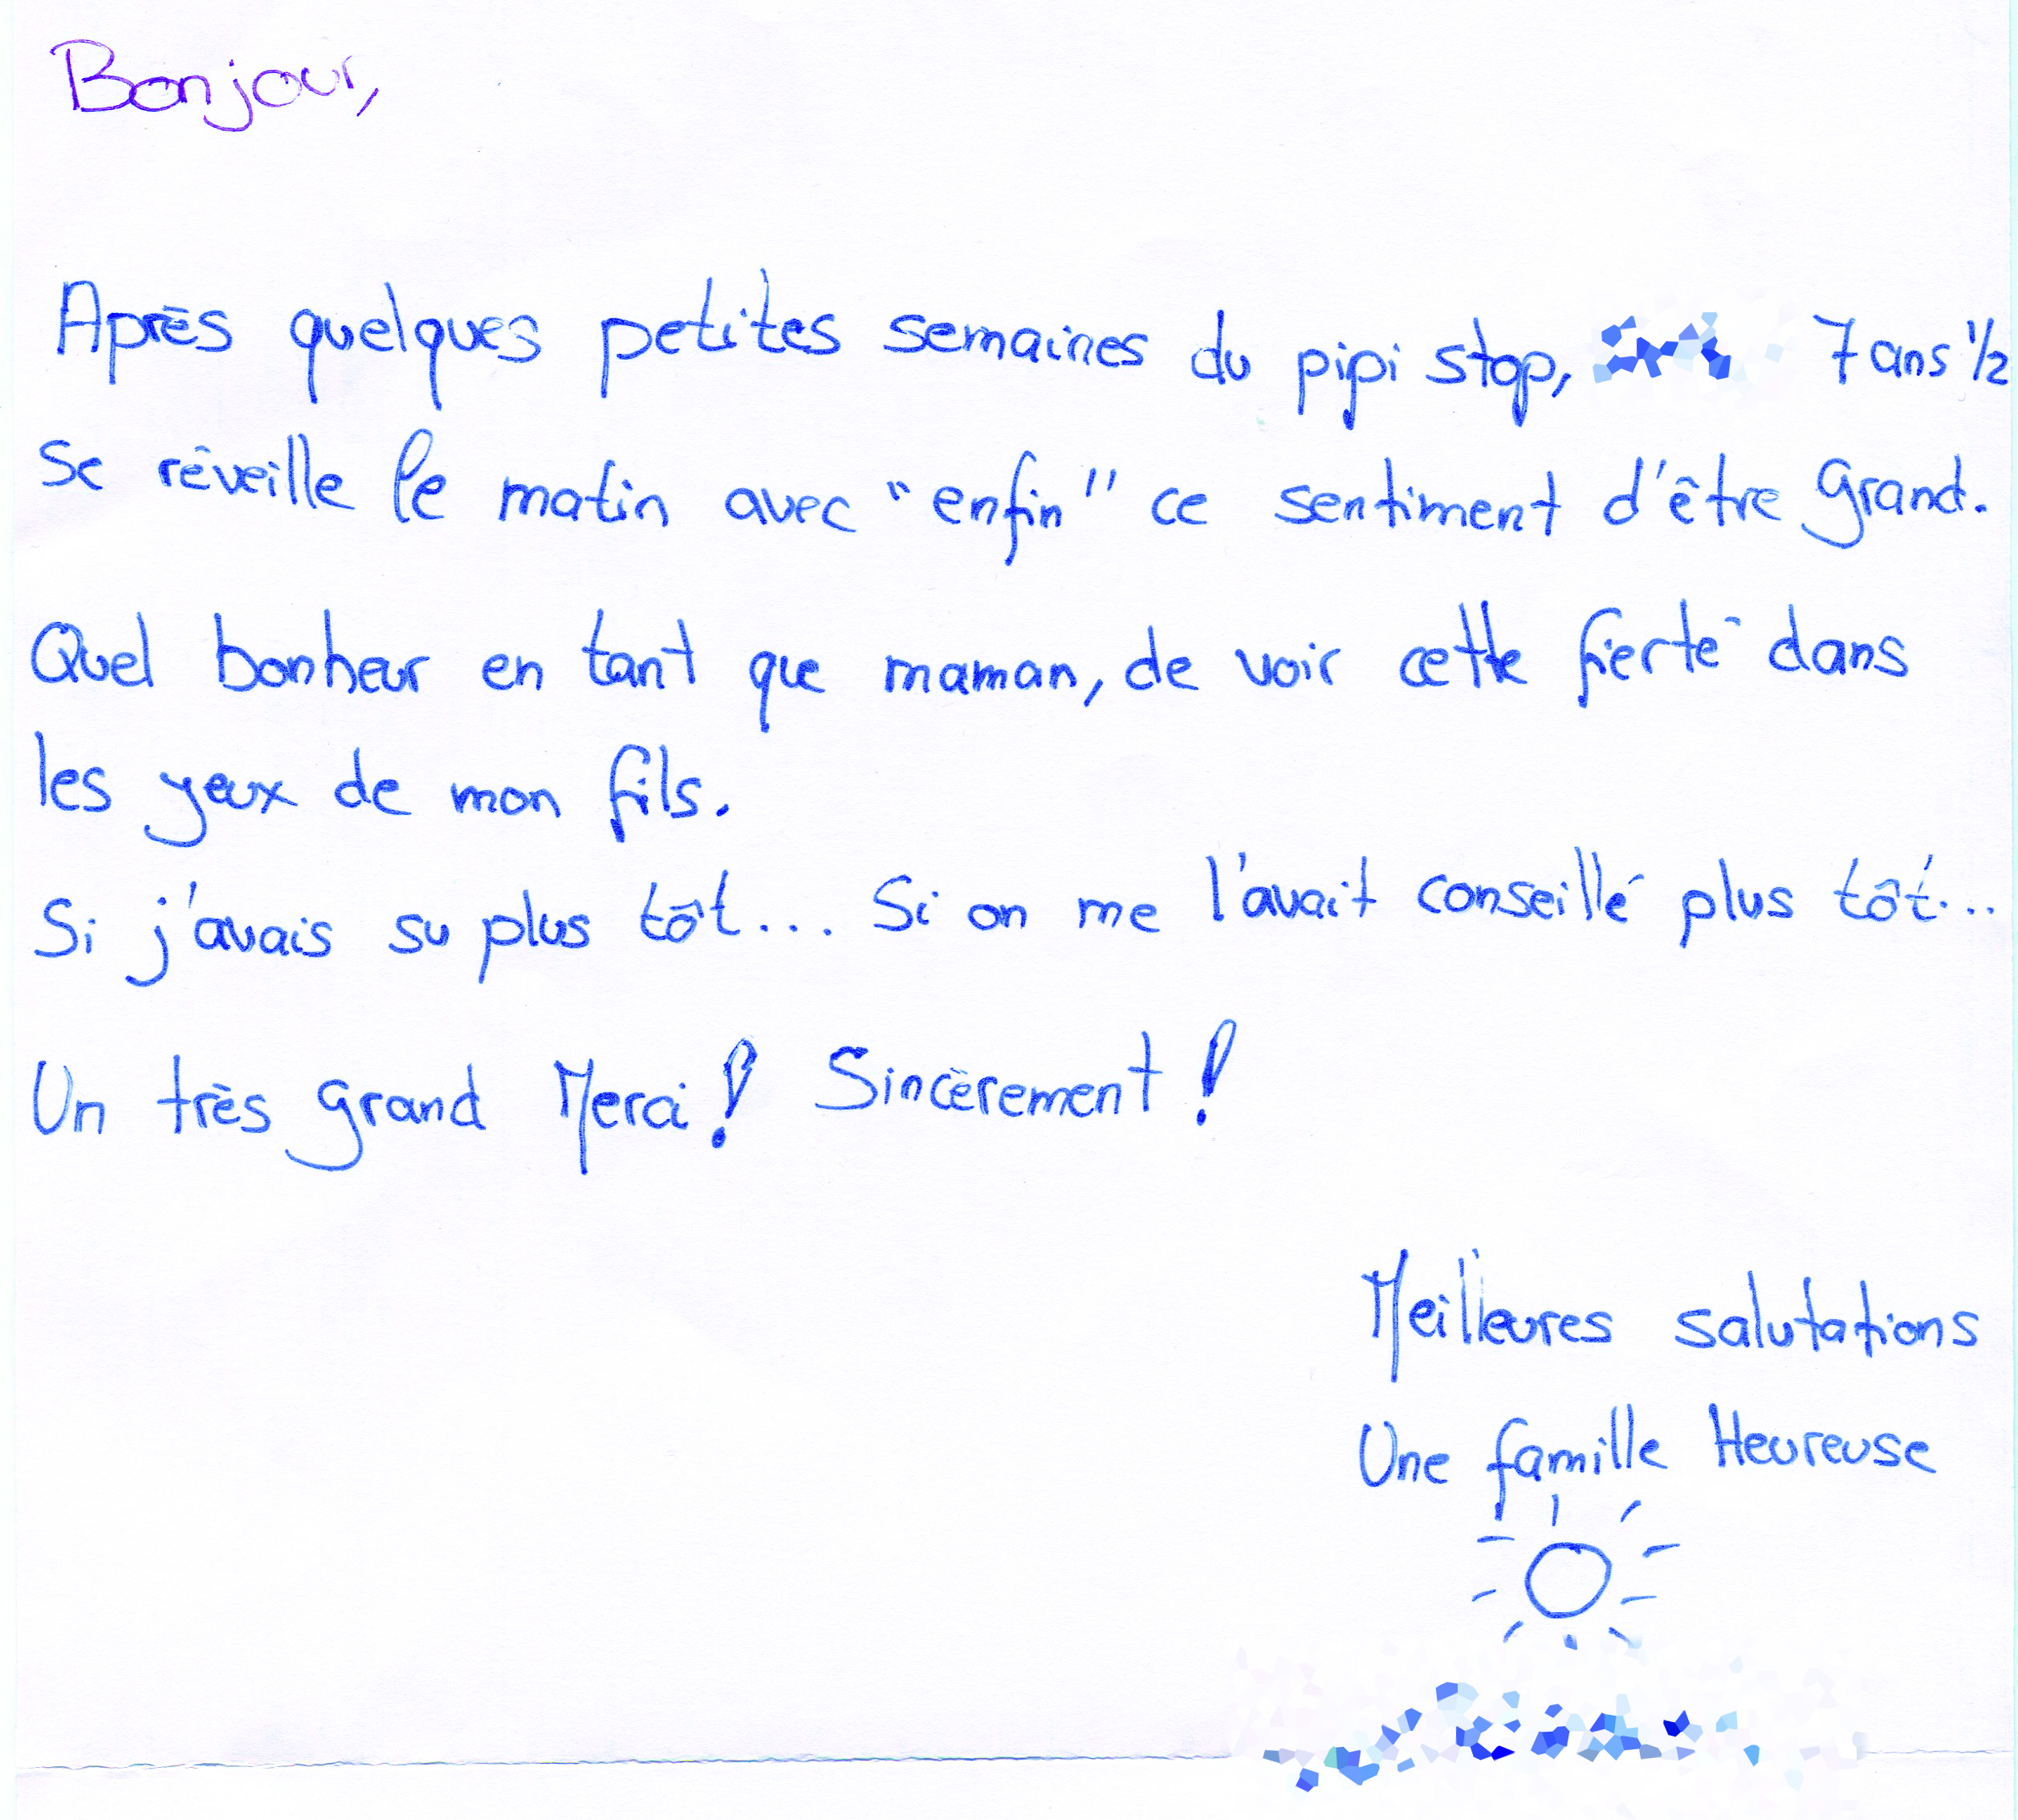 Bonjour,
Après quelques petites semaines du pipi stop, 7 ans 1/2
se réveille le matin avec "enfin" ce sentiment d'être grand.
Quel bonheur en tant que maman, de voir cette fierté dans
les yeux de mon fils.
Si j'avais su plus tôt... Si on me l'avait conseillé plus tôt...
Un très grand Merci! Sincèrement!
Meilleures salutations
Une famille Heureuse